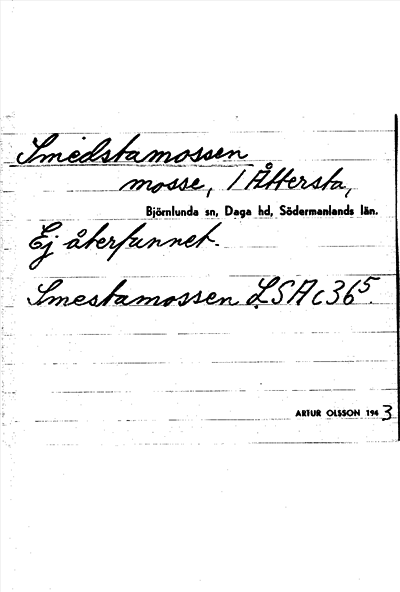 Smedstamossen
mosse, 1 Åttersta,
Björnlunda sn, Daga hd, Södermanlands län.
Ej återfunnet.
Smestamossen LSA c 36⁵.
ARTUR OLSSON 1943